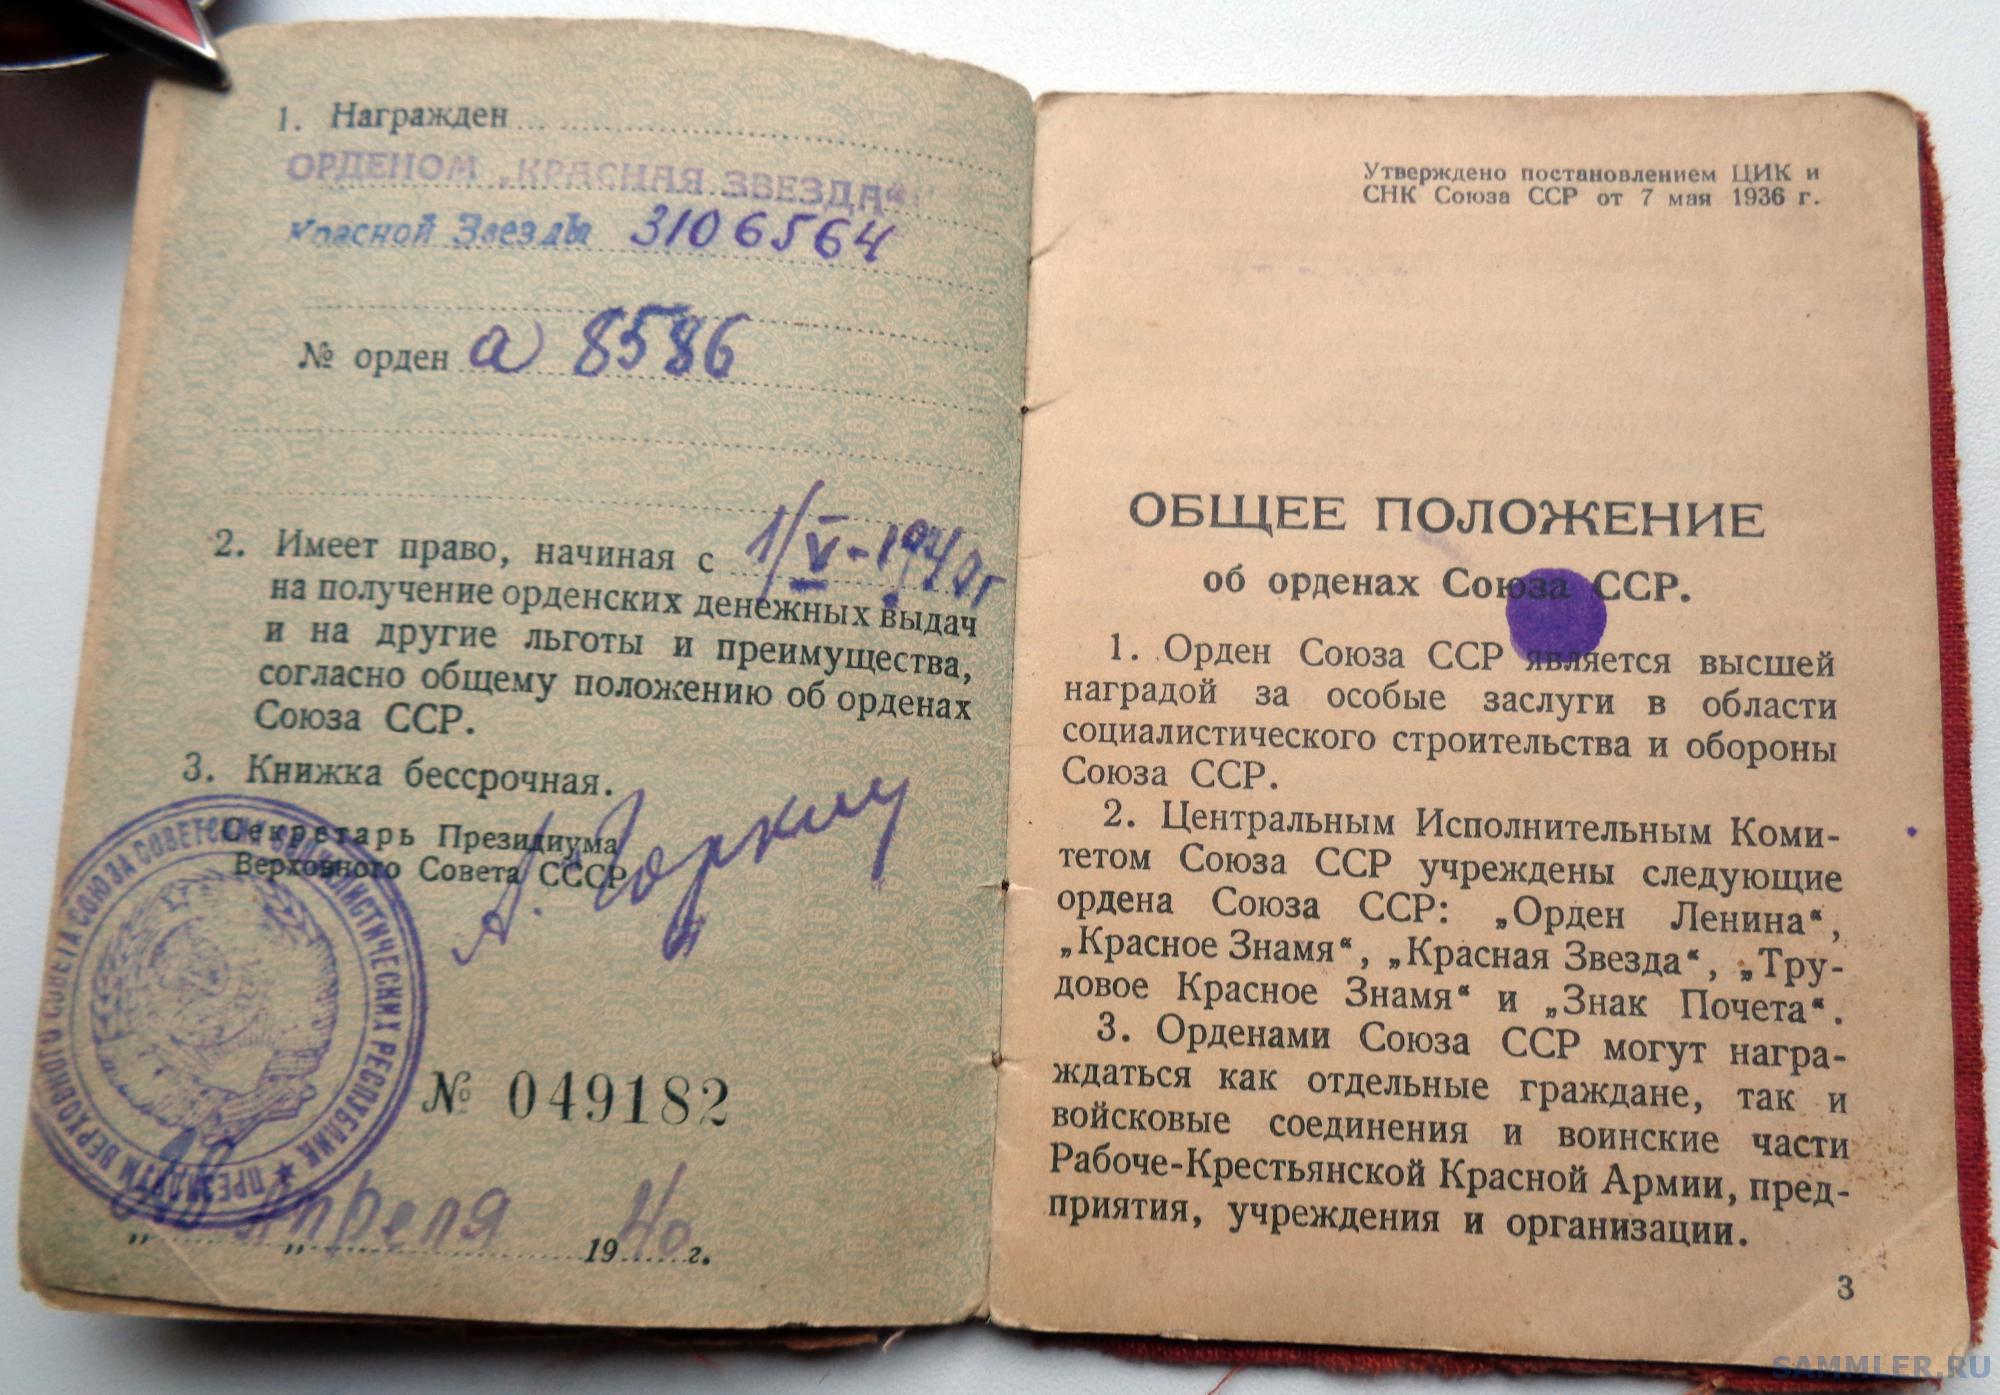 1. Награжден
ОРДЕНОМ „КРАСНАЯ ЗВЕЗДА“
Красной Звезды 3106564
№ орден а 8586
2. Имеет право, начиная с 1/V-1940г
на получение орденских денежных выдач
и на другие льготы и преимущества,
согласно общему положению об орденах
Союза ССР.
3. Книжка бессрочная.
Секретарь Президиума
Верховного Совета СССР
А. Горкин
ПРЕЗИДИУМ ВЕРХОВНОГО СОВЕТА СОЮЗА СОВЕТСКИХ СОЦИАЛИСТИЧЕСКИХ РЕСПУБЛИК
№ 049182
„ „ апреля 1940 г.
Утверждено постановлением ЦИК и
СНК Союза ССР от 7 мая 1936 г.
ОБЩЕЕ ПОЛОЖЕНИЕ
об орденах Союза ССР.
1. Орден Союза ССР является высшей
наградой за особые заслуги в области
социалистического строительства и обороны
Союза ССР.
2. Центральным Исполнительным Коми-
тетом Союза ССР учреждены следующие
ордена Союза ССР: „Орден Ленина“,
„Красное Знамя“, „Красная Звезда“, „Тру-
довое Красное Знамя“ и „Знак Почета“.
3. Орденами Союза ССР могут награ-
ждаться как отдельные граждане, так и
войсковые соединения и воинские части
Рабоче-Крестьянской Красной Армии, пред-
приятия, учреждения и организации.
3
SAMMLER.RU